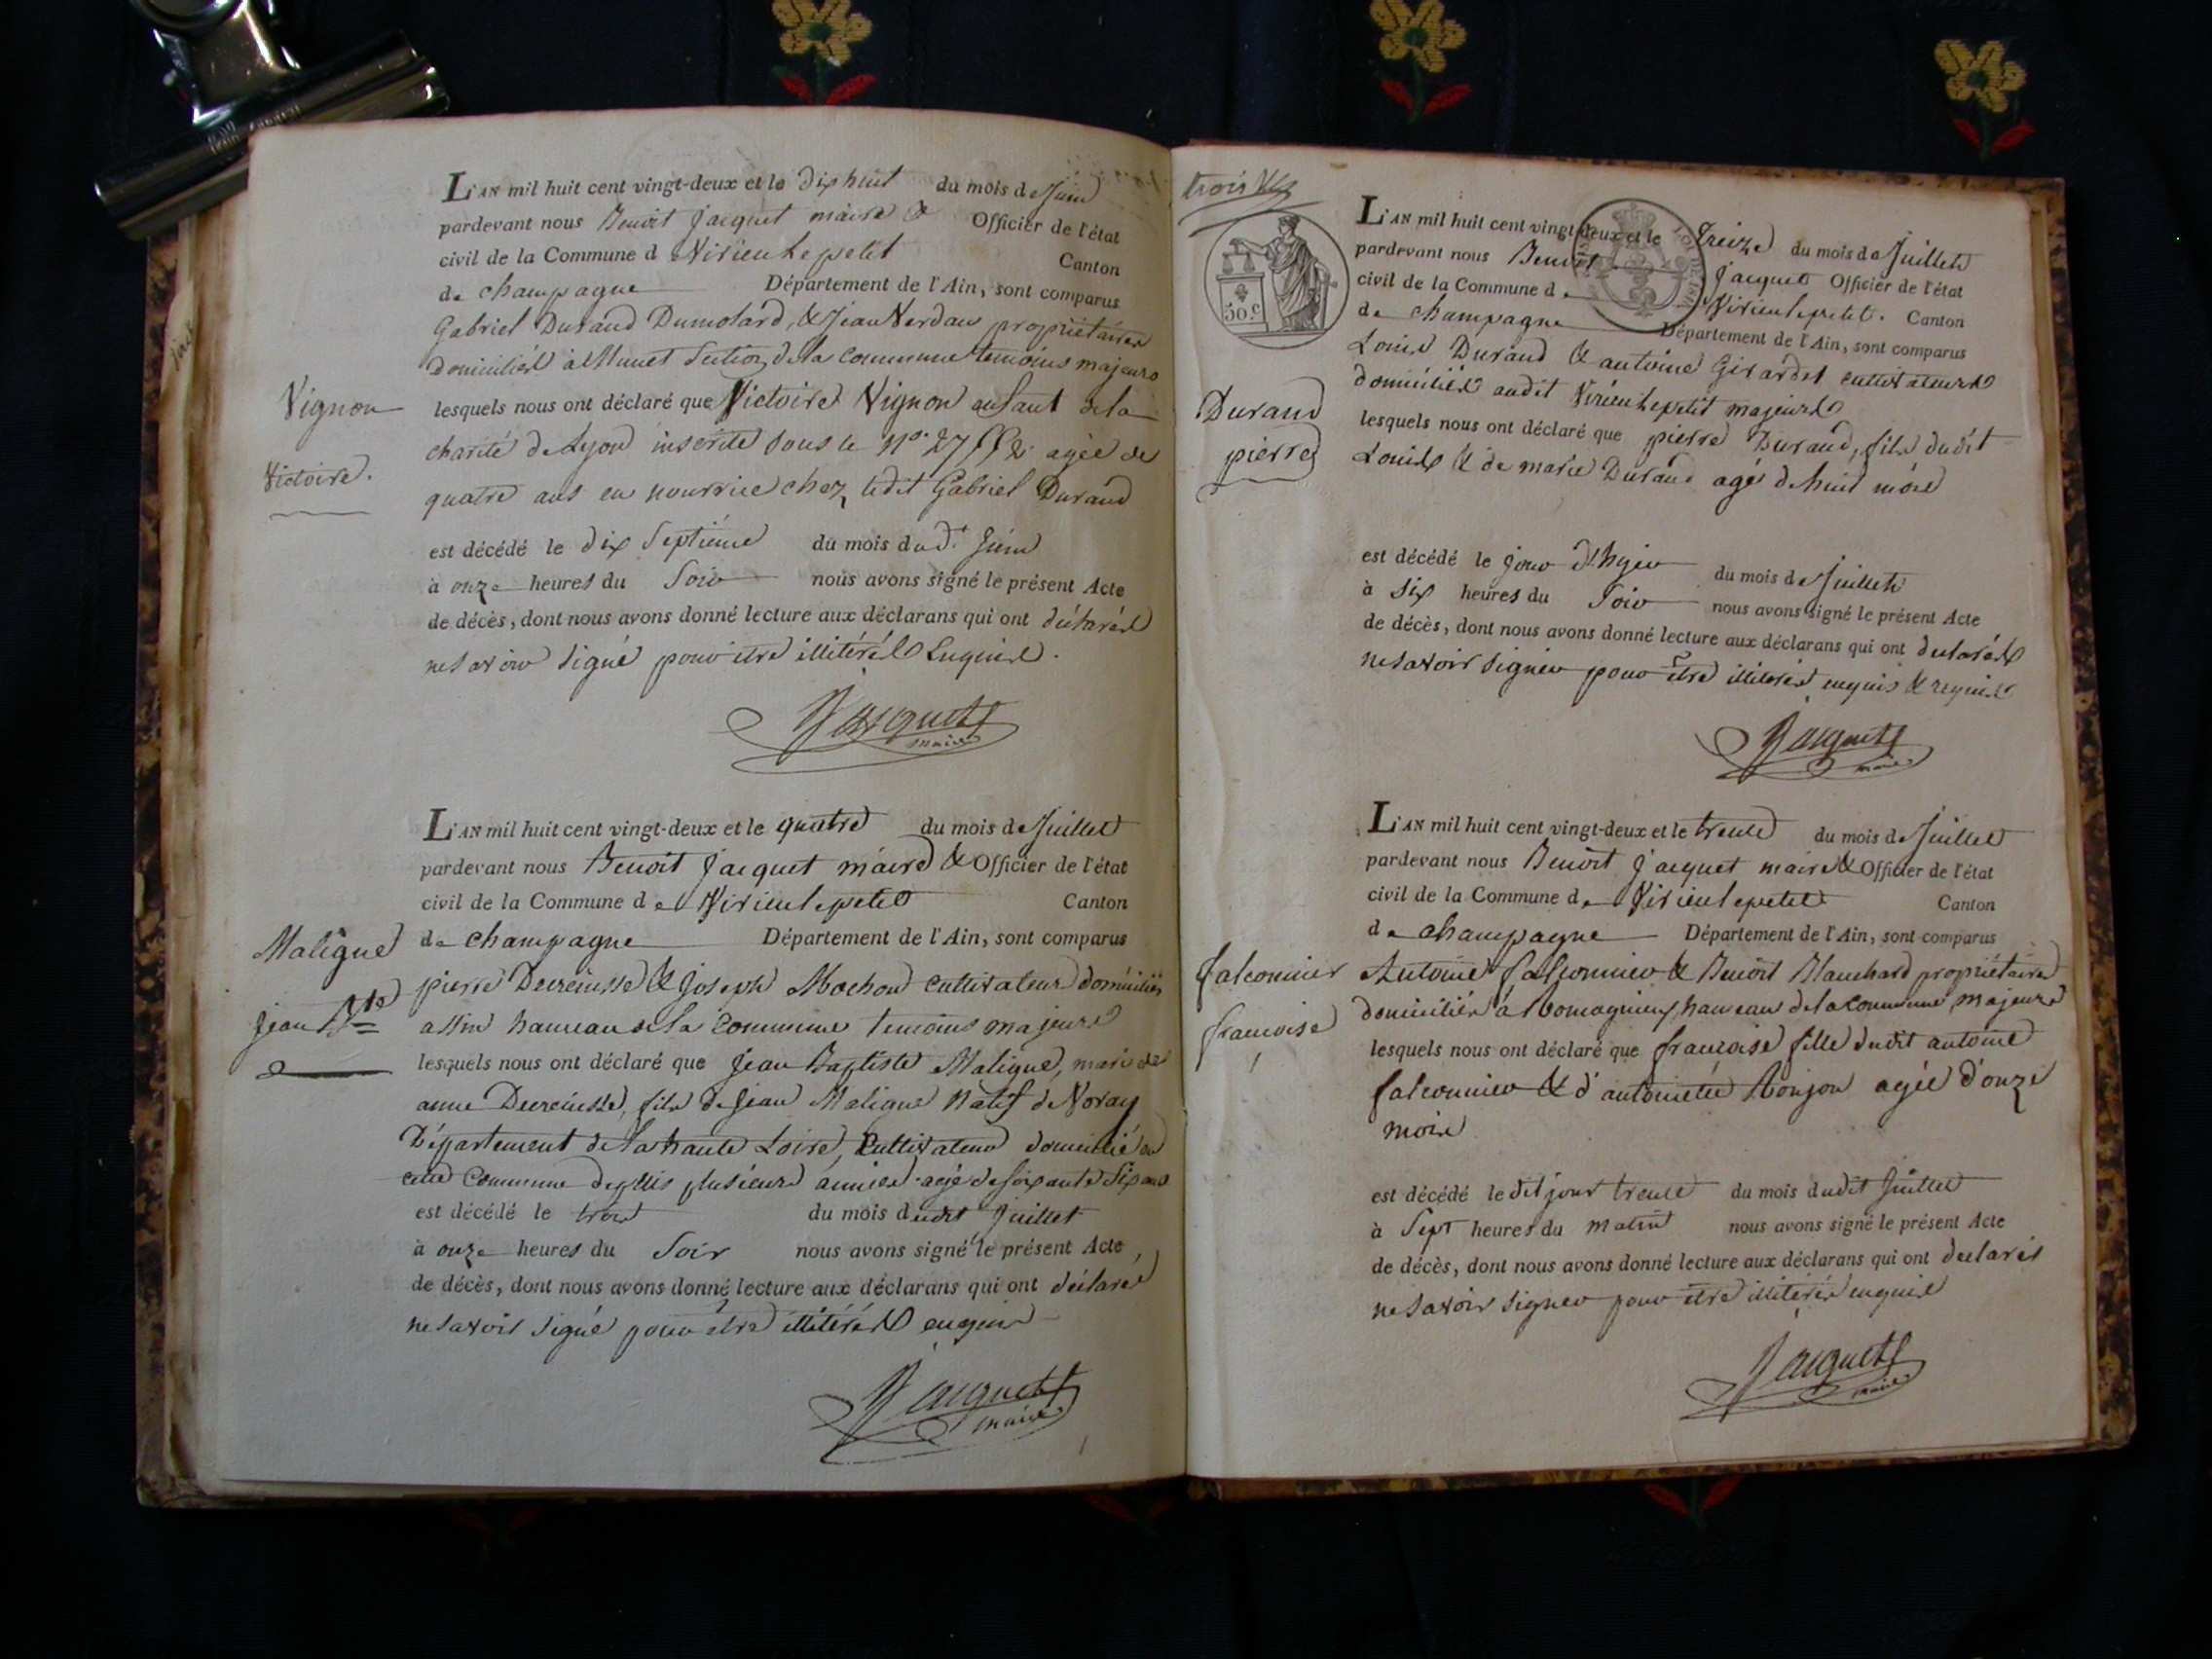 L'AN mil huit cent vingt-deux et le dix huit du mois de Juin
pardevant nous Benoit Jacquet maire & Officier de l'état
civil de la Commune de Virieulepetit Canton
de champagne Département de l'Ain, sont comparus
Gabriel Durand Dumolard, & Jean Verdau propriétaires
domiciliés à Munet Section de la commune temoins majeurs
Vignon
Victoire.
lesquels nous ont déclaré que Victoire Vignon enfant de la
charité de Lyon inscrite sous le No. agée de
quatre ans en nourrice chez ledit Gabriel Durand
est décédé le dix Septième du mois dud.t Juin
à onze heures du Soir nous avons signé le présent Acte
de décès, dont nous avons donné lecture aux déclarans qui ont déclarés
ne savoir signé pour être illitérés Enquis.
Jacquet
maire
L'AN mil huit cent vingt-deux et le quatre du mois de Juillet
pardevant nous Benoit Jacquet maire & Officier de l'état
civil de la Commune de Virieulepetit Canton
de champagne Département de l'Ain, sont comparus
Maligue
Jean Bte
pierre Decreusse & Joseph Mochon cultivateur domiciliés
hameau de la Commune temoins majeurs
lesquels nous ont déclaré que Jean Baptiste Maligue, mari de
anne Decreusse, fils de Jean Maligue Natif de Noray
Département de la haute Loire, Cultivateur domicilié en
cette Commune depuis plusieurs années agé de soixante Six ans
est décédé le trois du mois dudit Juillet
à onze heures du Soir nous avons signé le présent Acte
de décès, dont nous avons donné lecture aux déclarans qui ont déclarés
ne savoir signé pour être illitérés enquis
Jacquet
maire
trois
50.c
L'AN mil huit cent vingt-deux et le treize du mois de Juillet
pardevant nous Benoit Jacquet Officier de l'état
civil de la Commune de Virieulepetit. Canton
de champagne Département de l'Ain, sont comparus
Louis Durand & antoine Girardet cultivateurs
domiciliés audit Virieulepetit majeurs
Durand
pierre
lesquels nous ont déclaré que pierre Durand, fils dudit
Louis & de marie Durand agé de huit mois
est décédé le jour d'hyer du mois de Juillet
à six heures du Soir nous avons signé le présent Acte
de décès, dont nous avons donné lecture aux déclarans qui ont declarés
ne savoir signer pour être illiterés enquis & requis
Jacquet
maire
L'AN mil huit cent vingt-deux et le trente du mois de Juillet
pardevant nous Benoit Jacquet maire & Officier de l'état
civil de la Commune de Virieulepetit Canton
de champagne Département de l'Ain, sont comparus
falconnier
francoise
Antoine falconnier & Benoit Blanchard propriétaires
domiciliés à hameau de la commune, majeurs
lesquels nous ont déclaré que francoise fille dudit antoine
falconnier & d'antoinetée agée d'onze
mois
est décédé le dit jour trente du mois dudit Juillet
à Sept heures du matin nous avons signé le présent Acte
de décès, dont nous avons donné lecture aux déclarans qui ont declarés
ne savoir signer pour être illiterés enquis
Jacquet
maire